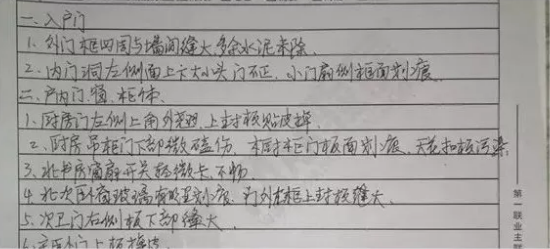 一、入户门
1、外门框四周与墙间缝大多余水泥未除、
2、内门洞左侧面上大小头门不正、小门扇侧框面划痕
二、户内门、窗、柜体
1、厨房门左侧上角外
上封板贴皮
2、厨房吊柜门下部微磕伤、柜门板面划痕、
板污染
3、北书房窗扇开关轻微卡、不畅
4、北次卧窗玻璃有明显划痕、门外框上封板缝大、
5、次卫门右侧板下部缝大、
6、
门上板
第一联业主联